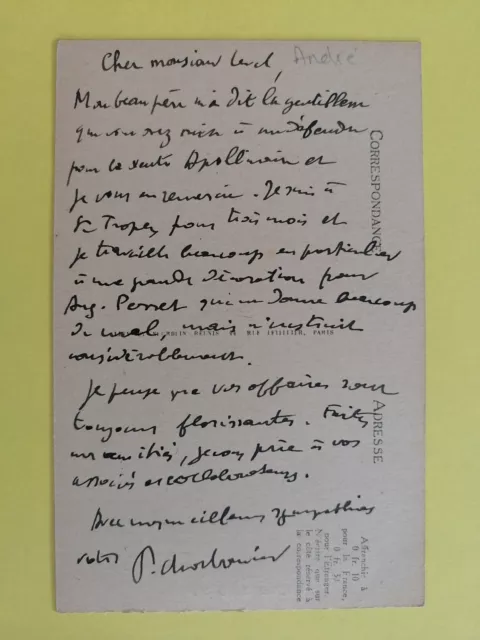 Cher monsieur Level,
André
Mon beau père m'a dit la gentillesse
que vous avez mise à me défendre
pour la vente Apollinaire et
je vous en remercie. Je suis à
St Tropez pour trois mois et
je travaille beaucoup en particulier
à une grande décoration pour
Aug. Perret qui me donne beaucoup
de mal, mais m'instruit
considérablement.
Je pense que vos affaires sont
toujours florissantes. Faites
mes amitiés, je vous prie à vos
associés et collaborateurs.
Avec mes meilleures sympathies
votre
CORRESPONDANCE
RUE LETELLIER, PARIS
ADRESSE
Affranchir à
0 fr. 10
pour la France,
0 fr.
pour l'Étranger.
N'écrire que sur
le côté réservé à
la correspondance